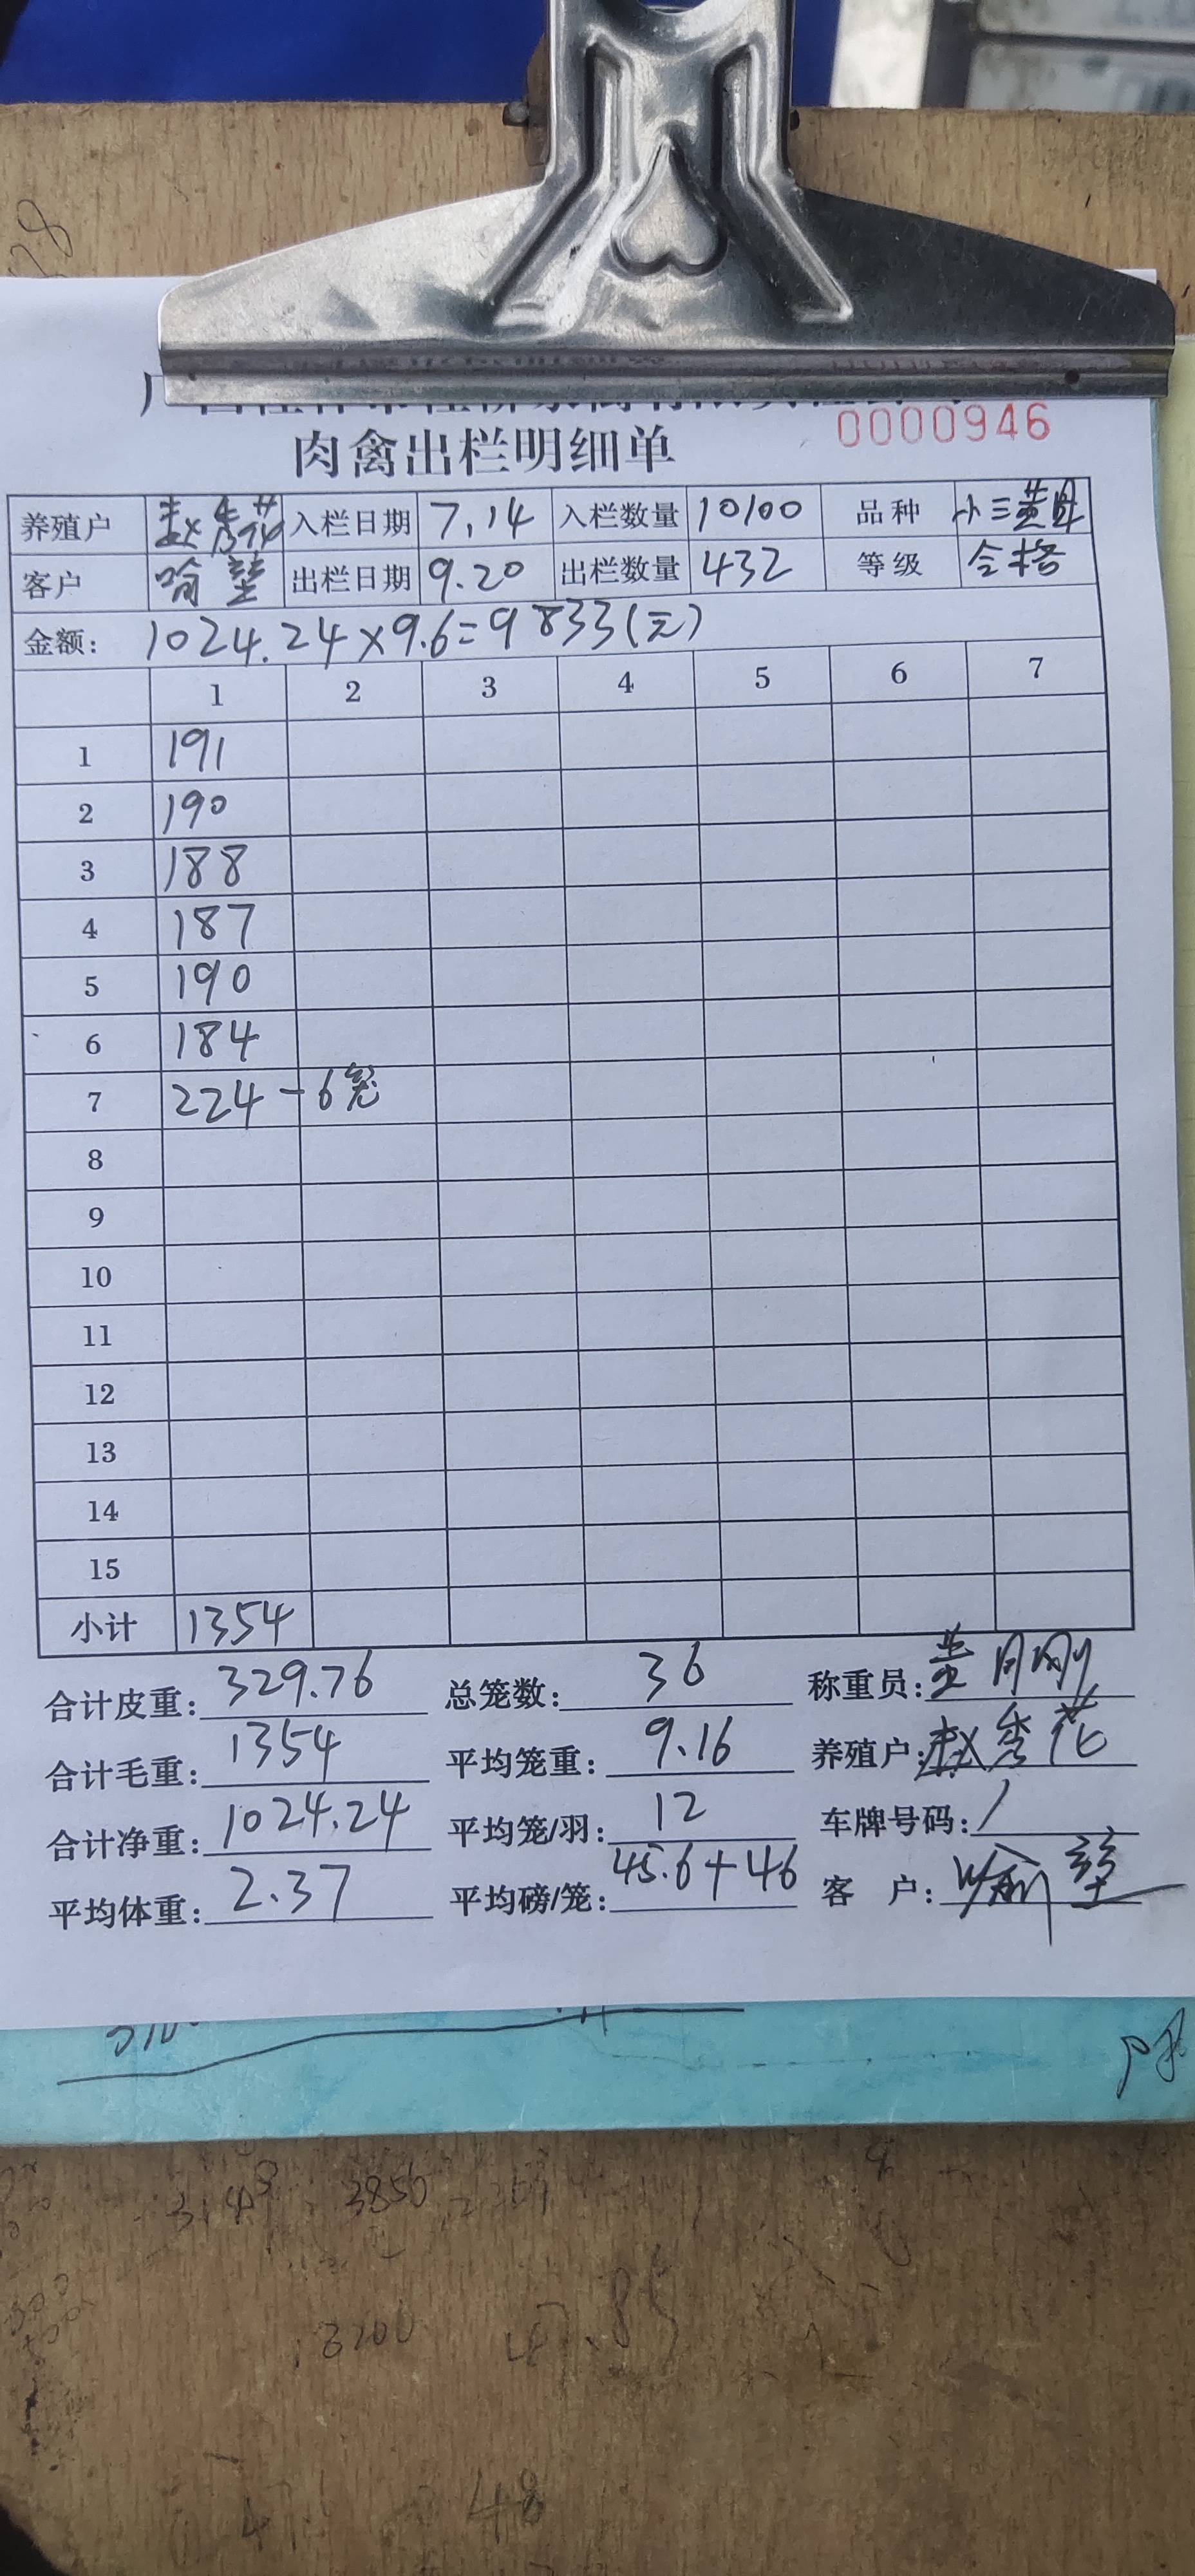 0000946
肉禽出栏明细单
养殖户 赵秀花 入栏日期 7.14 入栏数量 10100 品种 小三黄母
客户 喻堃 出栏日期 9.20 出栏数量 432 等级 合格
金额: 1024.24×9.6=9833(元)
1 2 3 4 5 6 7
1 191
2 190
3 188
4 187
5 190
6 184
7 224-6笼
8
9
10
11
12
13
14
15
小计 1354
合计皮重: 329.76 总笼数: 36 称重员: 黄月刚
合计毛重: 1354 平均笼重: 9.16 养殖户: 赵秀花
合计净重: 1024.24 平均笼/羽: 12 车牌号码: /
平均体重: 2.37 平均磅/笼: 45.6+46 客户: 喻堃
3850
3100
48